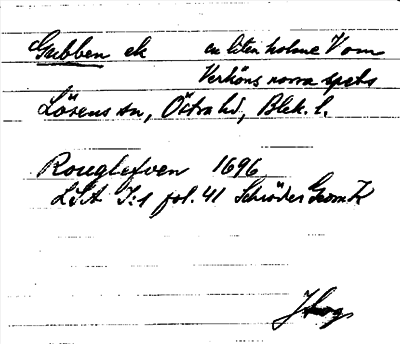 Gubben ek en liten holme V om
Verköns norra spets
Lösens sn, Östra hd, Blek. l.
Rouglefven 1696
LSA I:1 fol. 41 Schröder Geom. K